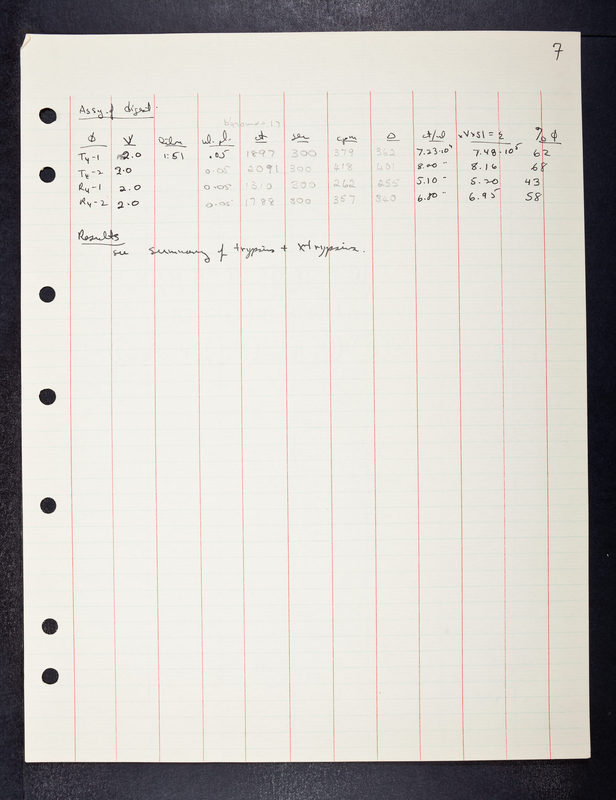 7
Assy of digest.
φ V Diln vl. pl. ct sec cpm Δ ct/vl xVx51 = ξ % φ
T4-1 2.0 1:51 .05 1897 300 379 362 7.23·10³ 7.48·10⁵ 62
T4-2 2.0 0.05 2091 300 418 401 8.00 " 8.16 68
R4-1 2.0 0.05 1310 300 262 255 5.10 " 5.20 43
R4-2 2.0 0.05 1788 300 357 340 6.80 " 6.95 58
Results
see summary of trypsins + x trypsins.